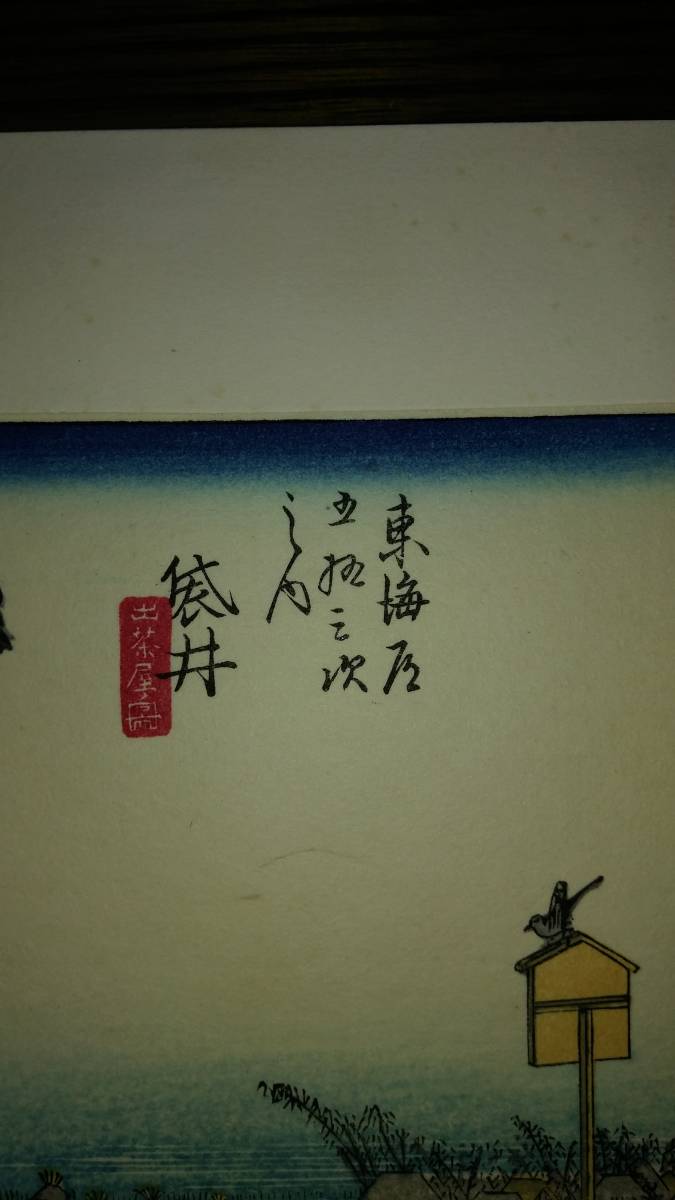 東海道
五拾三次
之内
袋井
出茶屋ノ図